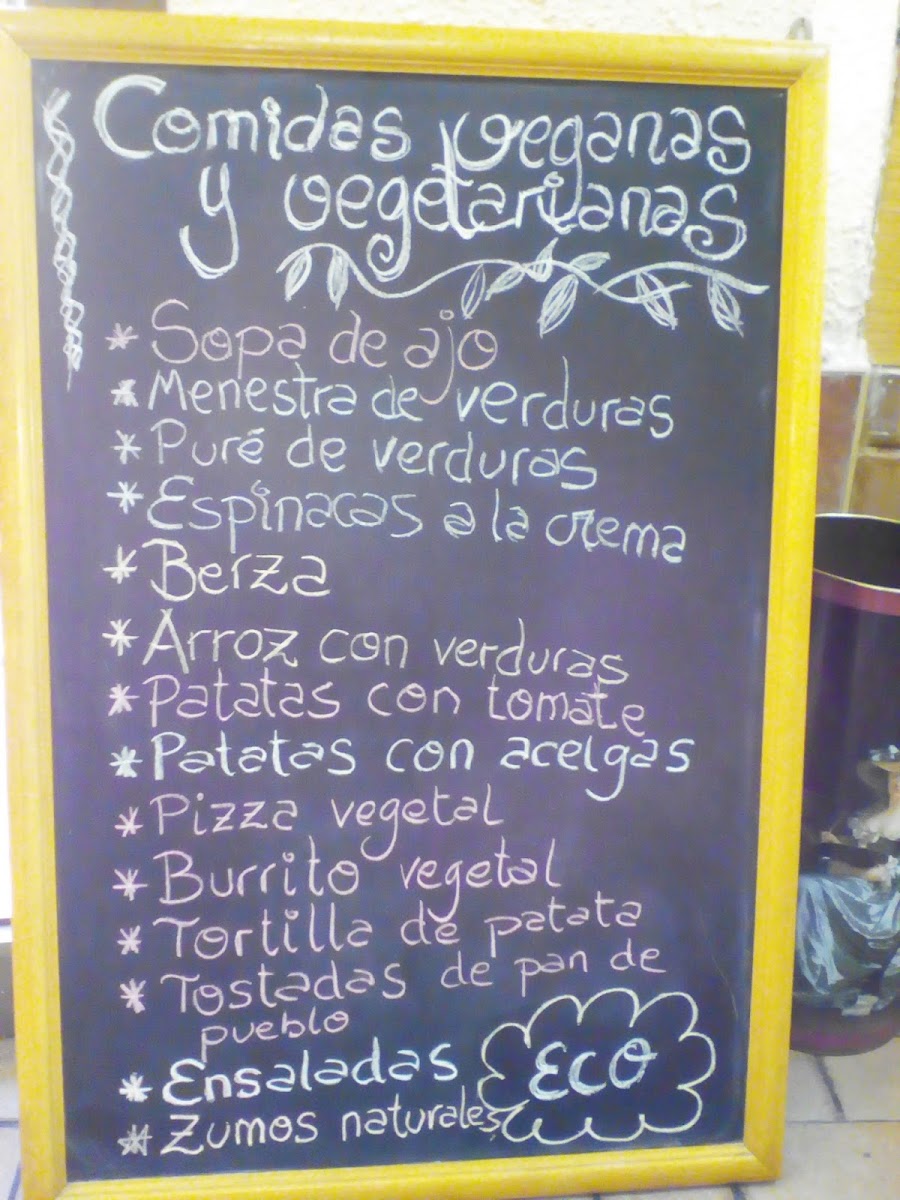 Comidas veganas
y vegetarianas
* Sopa de ajo
* Menestra de verduras
* Puré de verduras
* Espinacas a la crema
* Berza
* Arroz con verduras
* Patatas con tomate
* Patatas con acelgas
* Pizza vegetal
* Burrito vegetal
* Tortilla de patata
* Tostadas de pan de
pueblo
* Ensaladas
* Zumos naturales
ECO